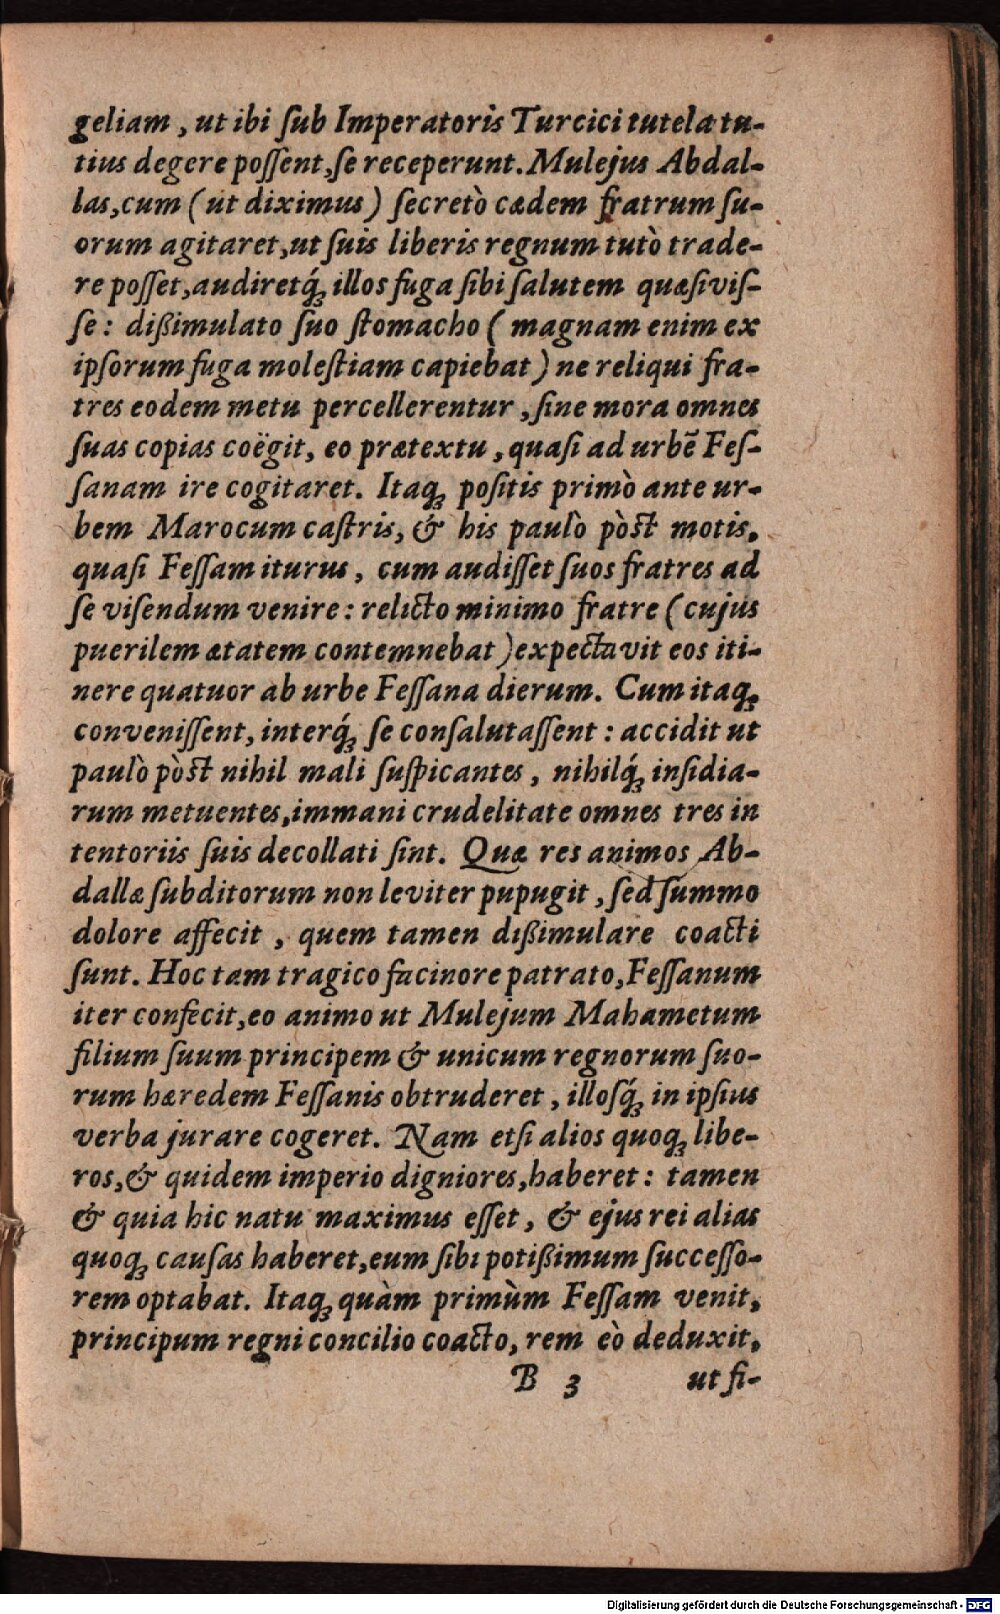 geliam, ut ibi ſub Imperatoris Turcici tutela tu-
tius degere poſſent, ſe receperunt. Mulejus Abdal-
las, cum (ut diximus) ſecretò cædem fratrum ſu-
orum agitaret, ut ſuis liberis regnum tutò trade-
re poſſet, audiretq́; illos fuga ſibi ſalutem quæſiviſ-
ſe: dißimulato ſuo ſtomacho (magnam enim ex
ipſorum fuga moleſtiam capiebat) ne reliqui fra-
tres eodem metu percellerentur, ſine mora omnes
ſuas copias coëgit, eo prætextu, quaſi ad urbē Feſ-
ſanam ire cogitaret. Itaq; poſitis primò ante ur-
bem Marocum caſtris, & his paulò pòſt motis,
quaſi Feſſam iturus, cum audiſſet ſuos fratres ad
ſe viſendum venire: relicto minimo fratre (cujus
puerilem ætatem contemnebat) expectavit eos iti-
nere quatuor ab urbe Feſſana dierum. Cum itaq;
conveniſſent, interq́; ſe conſalutaſſent: accidit ut
paulò pòſt nihil mali ſuſpicantes, nihilq́; inſidia-
rum metuentes, immani crudelitate omnes tres in
tentoriis ſuis decollati ſint. Quæ res animos Ab-
dallæ ſubditorum non leviter pupugit, ſed ſummo
dolore affecit, quem tamen dißimulare coacti
ſunt. Hoc tam tragico facinore patrato, Feſſanum
iter confecit, eo animo ut Mulejum Mahametum
filium ſuum principem & unicum regnorum ſuo-
rum hæredem Feſſanis obtruderet, illoſq́; in ipſius
verba jurare cogeret. Nam etſi alios quoq; libe-
ros, & quidem imperio digniores, haberet: tamen
& quia hic natu maximus eſſet, & ejus rei alias
quoq; cauſas haberet, eum ſibi potißimum ſucceſſo-
rem optabat. Itaq; quàm primùm Feſſam venit,
principum regni concilio coacto, rem eò deduxit,
B 3 ut fi-
Digitalisierung gefördert durch die Deutsche Forschungsgemeinschaft - DFG